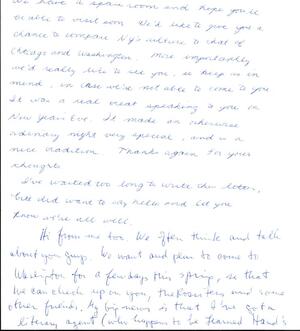 We have a spare room and hope you'll
be able to visit soon. We'd like to give you a
chance to compare NY's culture to that of
Chicago and Washington. More importantly
we'd really like to see you, so keep us in
mind, in case we're not able to come to you
It was a real treat speaking to you on
New Years Eve. It made an otherwise
ordinary night very special, and is a
nice tradition. Thanks again for your
thoughts
I've waited too long to write this letter,
but did want to say hello and let you
know we're all well.
Hi from me too. We often think and talk
about you guys. We want and plan to come to
Washington for a few days this spring, so that
we can check up on you, the and some
other friends. My big news is that I've got a
literary agent (who happens to be named